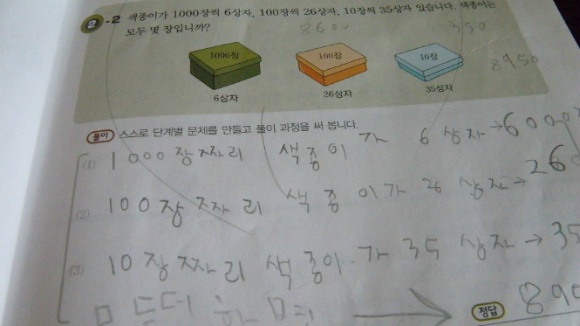 2-2 색종이가 1000장씩 6상자, 100장씩 26상자, 10장씩 35상자 있습니다. 색종이는
모두 몇 장입니까?
8600
350
8950
1000장 100장 10장
6상자 26상자 35상자
풀이 스스로 단계별 문제를 만들고 풀이 과정을 써 봅니다.
(1) 1000장짜리 색종이가 6상자→6000
(2) 100장짜리 색종이가 26상자→260
(3) 10장짜리 색종이가 35상자→35
모두더하면 →
정답 890